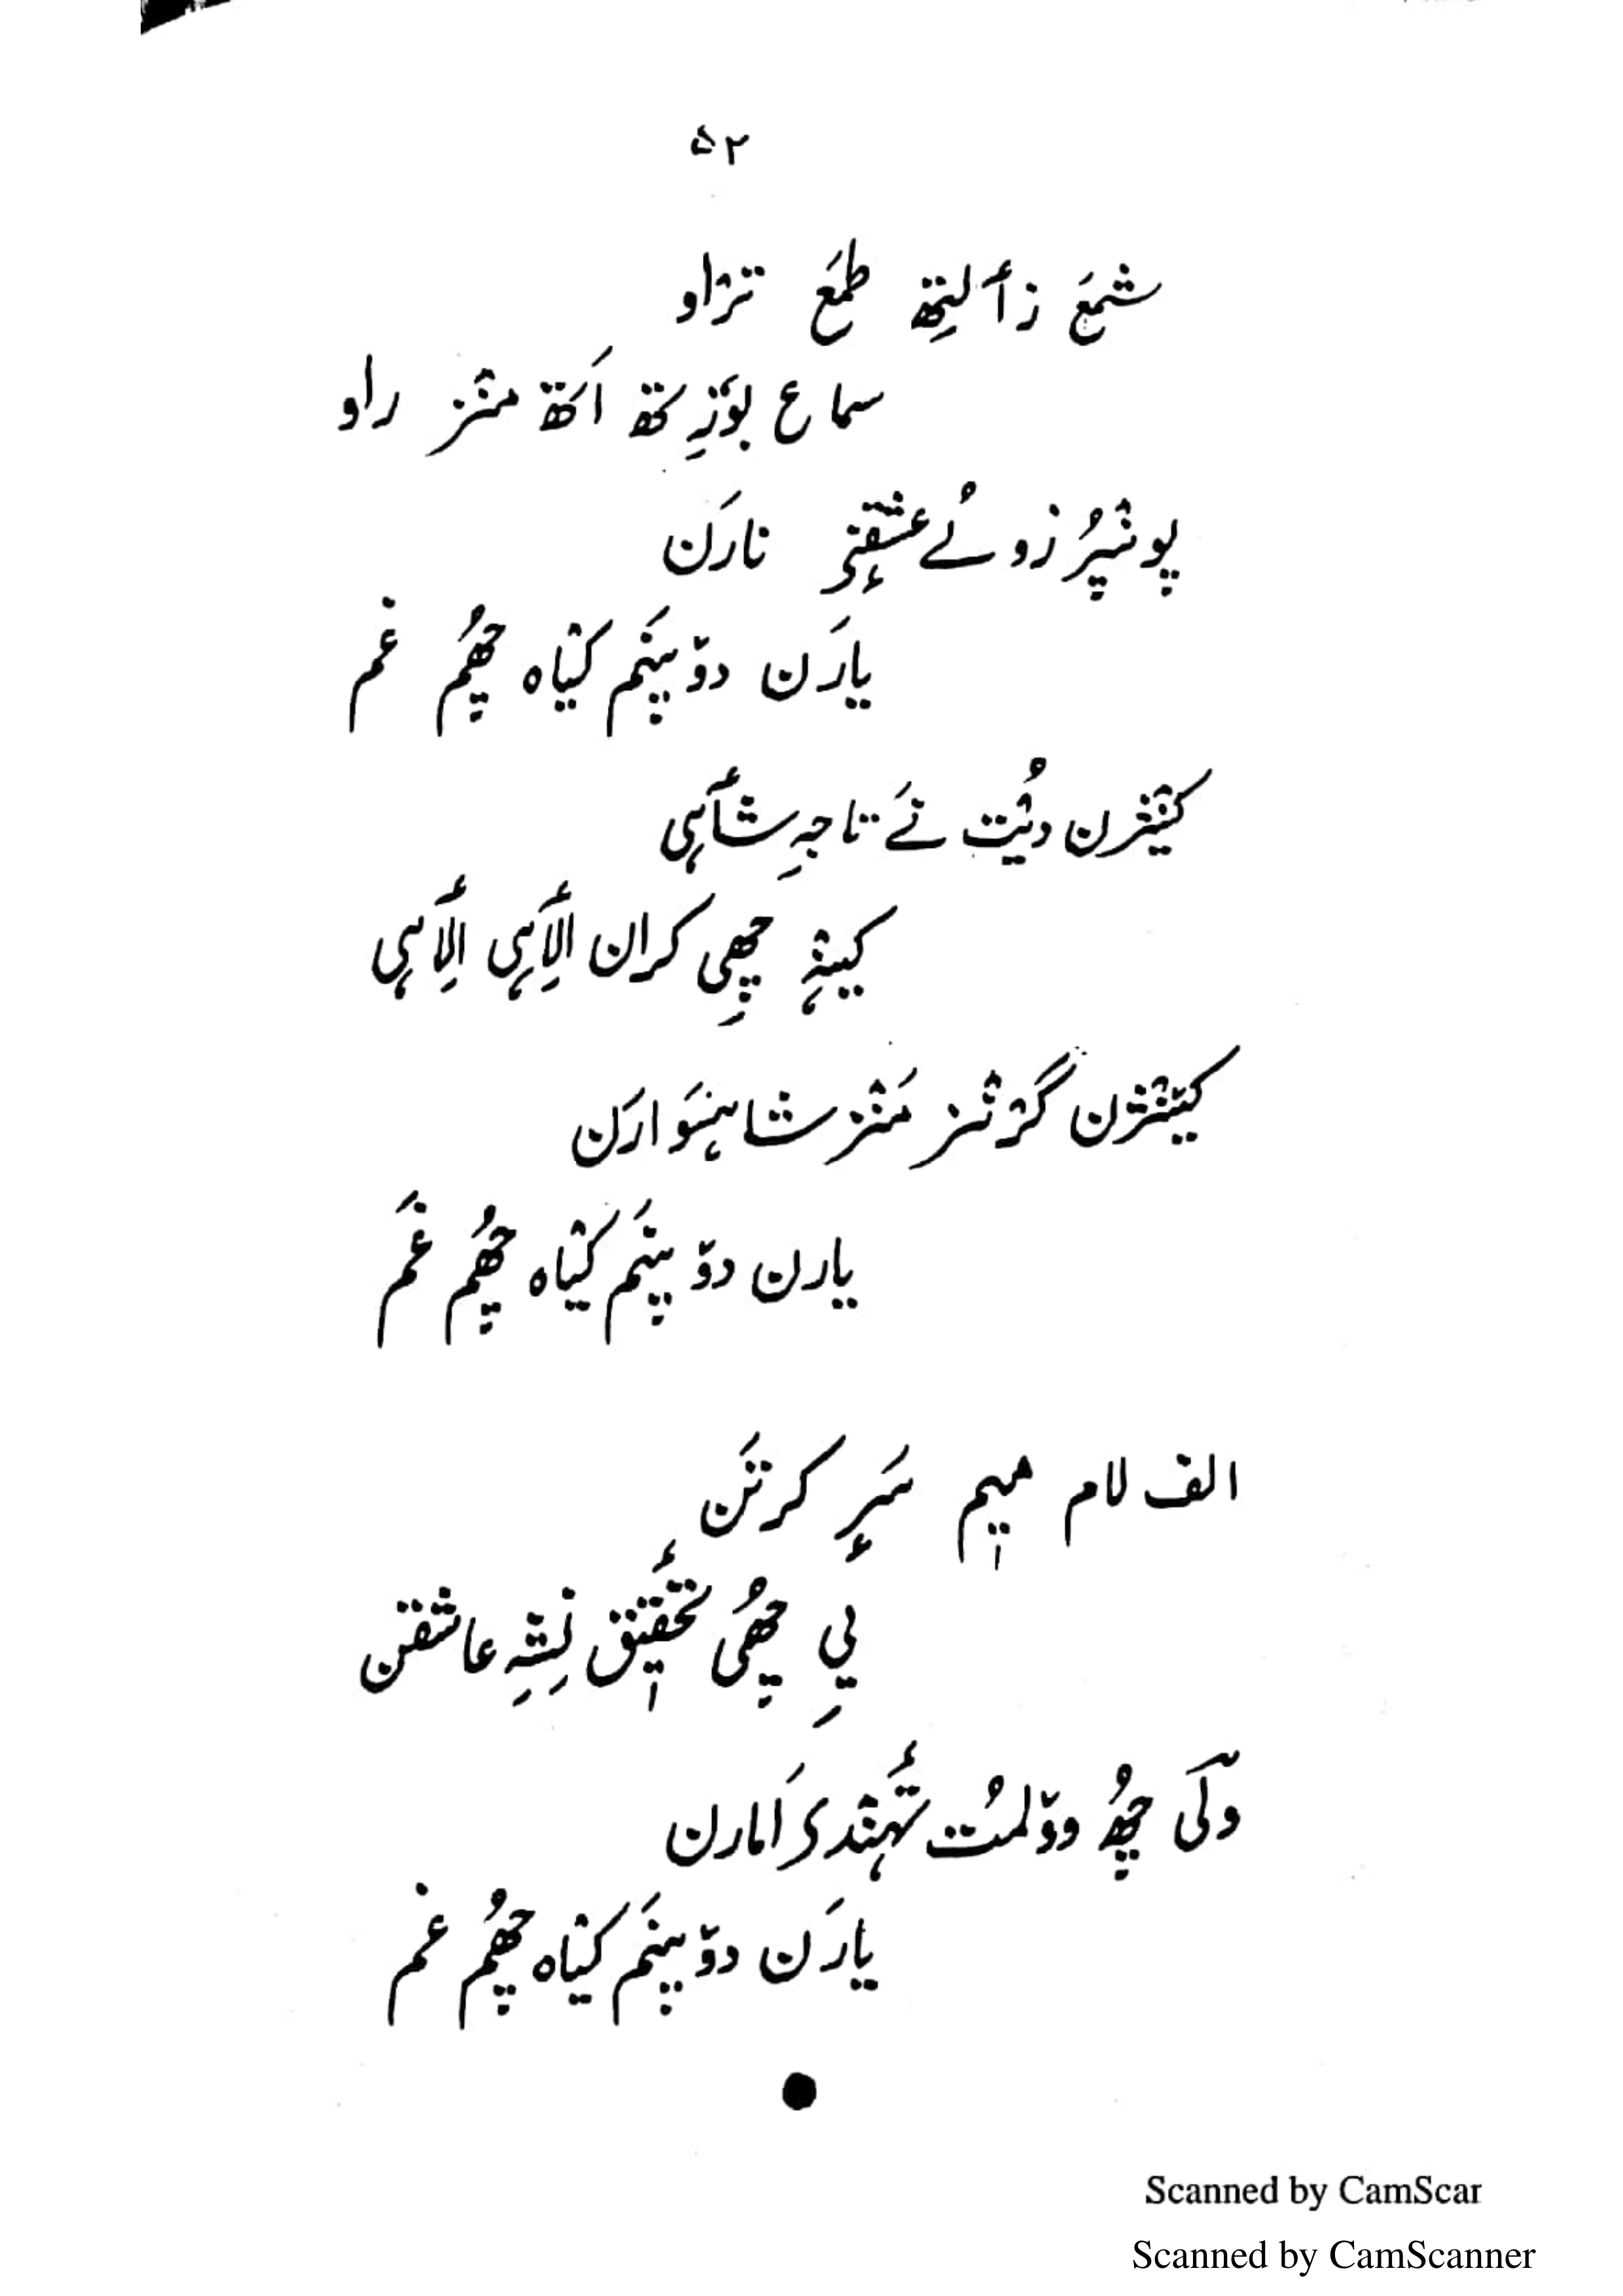 ۵۲
شمعَ زٲلِتھ طمَع تژاو
سماع بوٗزِتھ اَتھ منٛز راو
پونٛپُر زوٗلُے عشقٕنۍ نارَن
یارَن دوٚپنَم کیٛاہ چھُم غم
کینٛژن دیُٛت نَے تاجہِ شٲہی
کینٛہہ چھِی کران اِلٲہی اِلٲہی
کینٛژن گژنٛز مَنٛز شاہسَوارَن
یارن دوٚپنَم کیٛاہ چھُم غَم
الف لام میٖم سَرٕ کرتَن
یِی چھُی تحقٟیٖق نِشہِ عاشقن
وَلۍ چھُ ووٚلمُت تٔہنٛدی اَمارن
یارَن دوٚپنَم کیٛاہ چھُم غم
Scanned by CamScar
Scanned by CamScanner